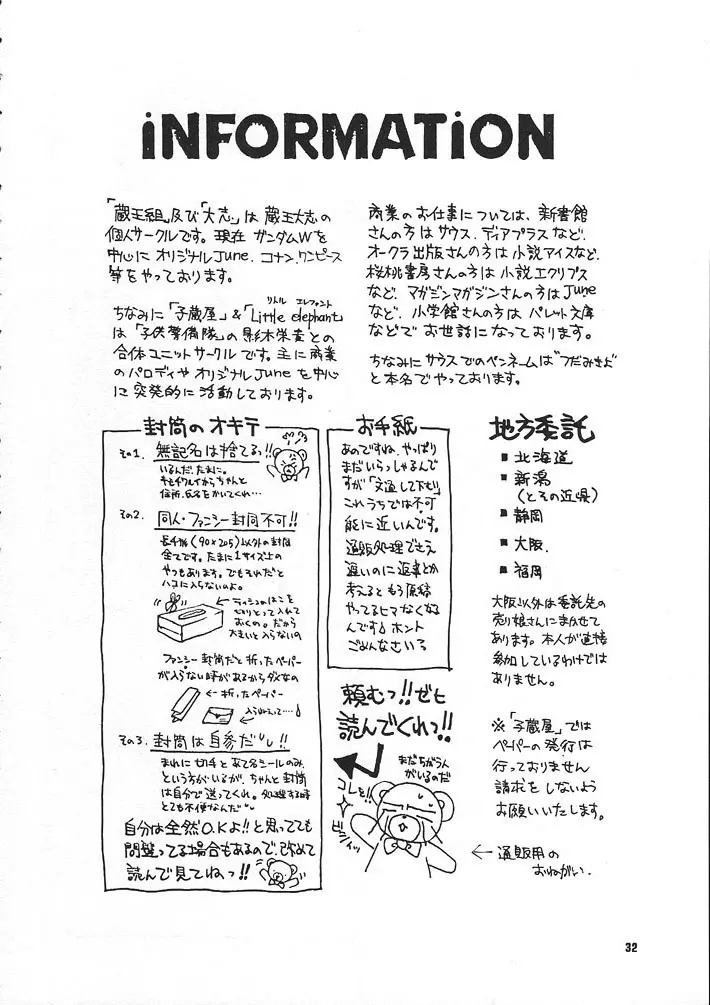 INFORMATION
「蔵王組」及び「大志」は 蔵王大志の
個人サークルです。現在 ガンダムWを
中心に オリジナルJune、コナン、ワンピース
等をやっております。
ちなみに「子蔵屋」&「Little elephant」
リトル エレファント
は「子供警備隊」の影木栄貴との
合体ユニットサークルです。主に商業
のパロディや オリジナルJuneを中心
に突発的に活動しております。
商業のお仕事については、新書館
さんの方は サウス、ディアプラスなど、
オークラ出版さんの方は 小説アイスなど、
桜桃書房さんの方は 小説エクリプス
など、マガジンマガジンさんの方はJune
など、小学館さんの方は パレット文庫
などで お世話になっております。
ちなみに サウスでのペンネームは"つだみきよ"
と本名でやっております。
封筒のオキテ
その1. 無記名は捨てるっ!!
いるんだ。たまに。
キモチワルイからちゃんと
住所、氏名をかいてくれ…
その2. 同人・ファンシー封筒不可!!
長4形(90×205)以外の封筒
全てです。たまに1サイズ上の
やつもあります。でもそれだと
ハコに入らないのよ。
←ティシュのはこを
とりとって入れて
おくの。だから
大きいと入らないの
ファンシー封筒だと折ったペーパー
が入らない時があるからダメなの
←折ったペーパー
入らねぇって…!
その3. 封筒は自参だ!!
まれに 切手とあて名シールのみ、
という方がいるが、ちゃんと封筒
は自分で送ってくれ。処理する時
とても不便なんだ
自分は全然O.Kよ!!と思ってても
間違ってる場合もあるので、改めて
読んで見てねっ!!
お手紙
あのですね、やっぱり
まだいらっしゃるんで
すが「文通して下さい」
これうちでは不可
能に近いんです。
通販処理でさえ
遅いのに返事とか
考えるともう原稿
やってるヒマなくなる
んです♪ホント
ごめんなさい?
頼むっ!!ゼヒ
読んでくれっ!!
まだちがう人
がいるのだ
コレを!!
ビシィッ
地方委託
■ 北海道
■ 新潟
(とその近県)
■ 静岡
■ 大阪
■ 福岡
大阪以外は委託先の
売り娘さんにまかせて
あります。本人が直接
参加しているわけでは
ありません。
※「子蔵屋」では
ペーパーの発行は
行っておりません
請求をしないよう
お願いいたします。
← 通販用の
おねがい.
32